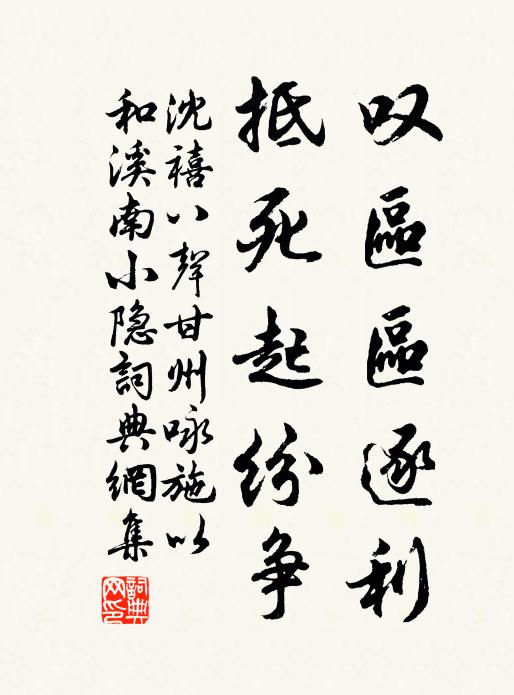 叹區區逐利
抵死起纷争
沈禧八聲甘州咏施以
和溪南小隐詞典網集
詞典
网印